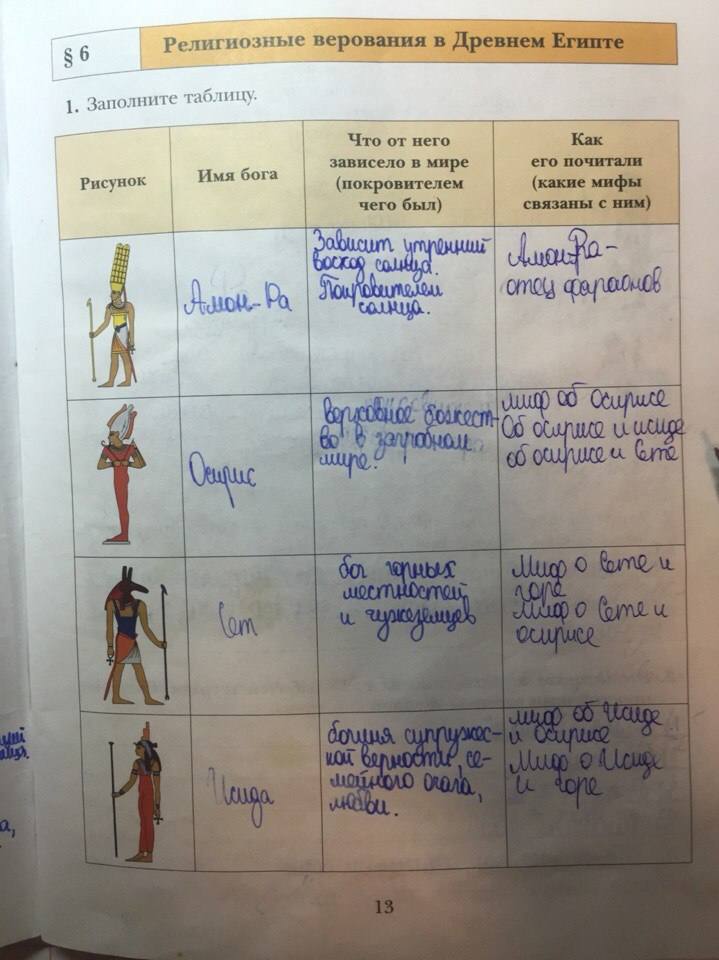 § 6
Религиозные верования в Древнем Египте
1. Заполните таблицу.
Рисунок
Имя бога
Что от него
зависело в мире
(покровителем
чего был)
Как
его почитали
(какие мифы
связаны с ним)
Амон-Ра
Зависит утренний
восход солнца.
Покровителем
солнца.
Амон-Ра-
отец фараонов
Осирис
верховное божест-
во в загробном
мире.
миф об осирисе
Об осирисе и исиде
об осирисе и Сете
Сет
бог горных
местностей
и чужеземцев
Миф о Сете и
горе
Миф о Сете и
осирисе
Исида
богиня супружес-
кой верности, се-
мейного очага,
любви.
миф об Исиде
и осирисе
Миф о Исиде
и горе
13